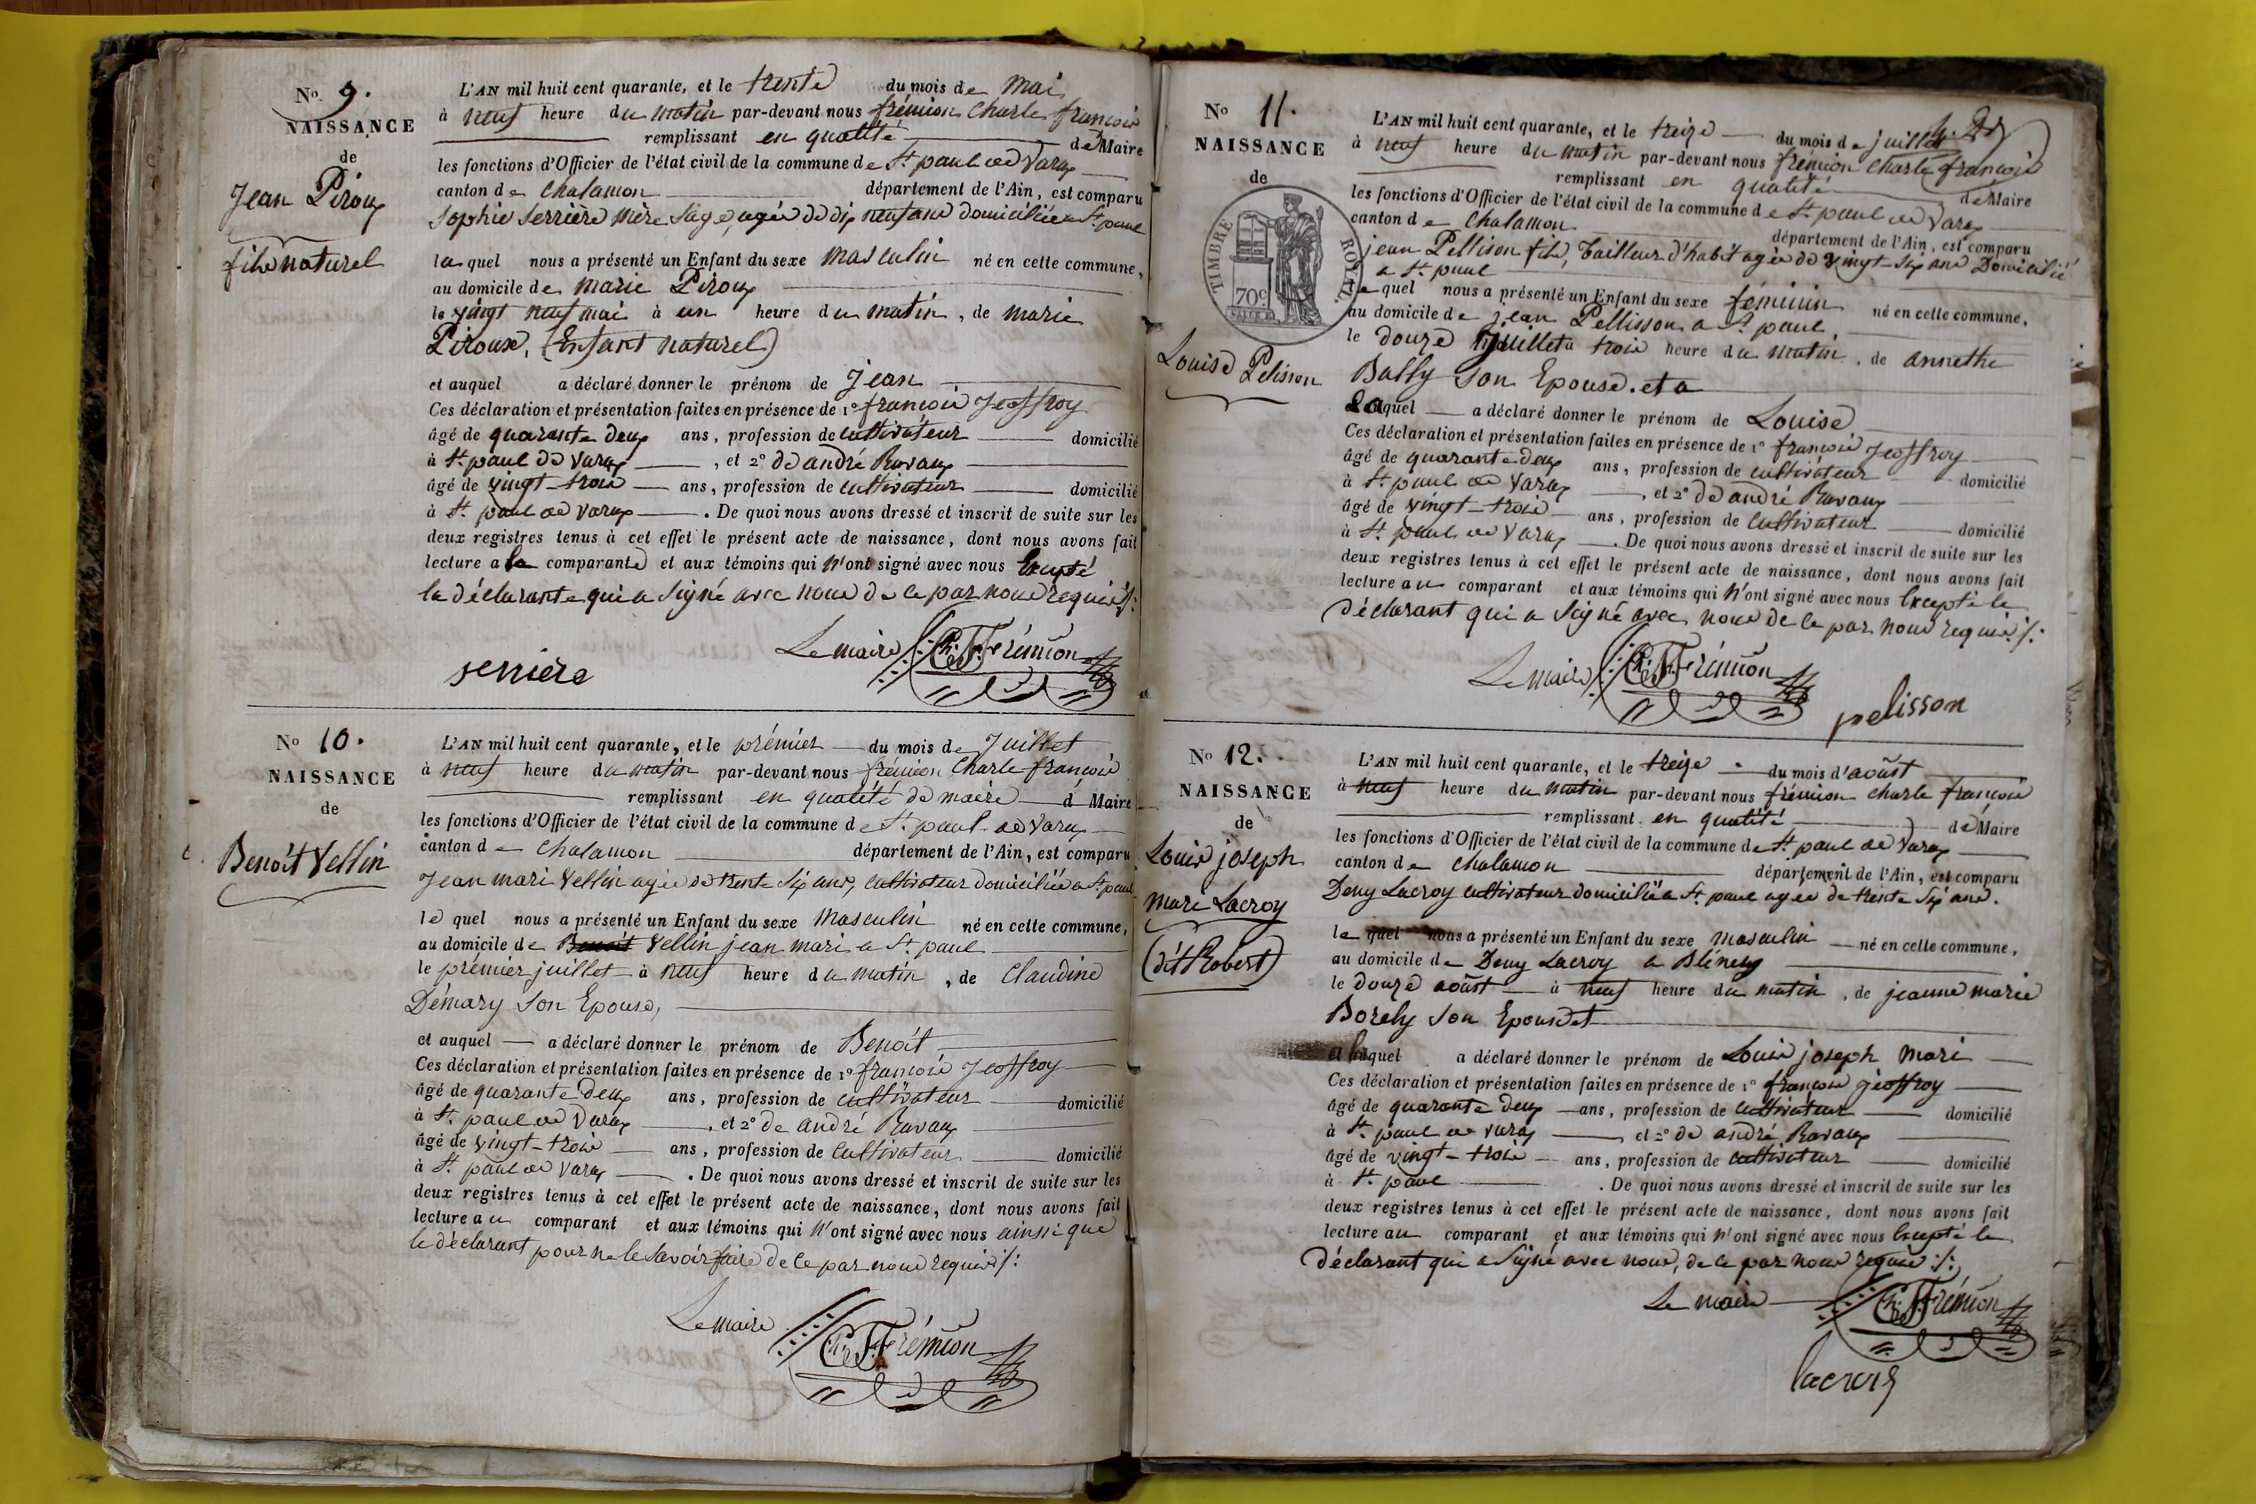 No 9.
NAISSANCE
de
Jean Piroux
fils naturel
L'AN mil huit cent quarante, et le trente du mois de mai
à neuf heure du matin par-devant nous frémion Charle françois
remplissant en qualité de Maire
les fonctions d'Officier de l'état civil de la commune de St. paul de Varax
canton de Chalamon département de l'Ain, est comparu
Sophie Serrière mère Sage, agée de dix neuf ans domiciliée a St. paul
laquel nous a présenté un Enfant du sexe masculin né en cette commune,
au domicile de marie Piroux
le vingt neuf mai à un heure du matin, de marie
Piroux, (Enfant naturel)
et auquel a déclaré donner le prénom de Jean
Ces déclaration et présentation faites en présence de 1° françois Jeoffroy
âgé de quarante deux ans, profession de cultivateur domicilié
à St. paul de Varax, et 2° de andré Ravaux
âgé de vingt-trois ans, profession de cultivateur domicilié
à St. paul de Varax. De quoi nous avons dressé et inscrit de suite sur les
deux registres tenus à cet effet le présent acte de naissance, dont nous avons fait
lecture a la comparante et aux témoins qui n'ont signé avec nous Excepté
la déclarante qui a signé avec nous de ce par nous requis /:
Le maire Ch. F. Frémion
serriere
No 10.
NAISSANCE
de
Benoît Vellin
L'AN mil huit cent quarante, et le prémier du mois de Juillet
à neuf heure du matin par-devant nous frémion Charle françois
remplissant en qualité de maire d Maire
les fonctions d'Officier de l'état civil de la commune de St. paul de Varax
canton de Chalamon département de l'Ain, est comparu
Jean mari Vellin agée de trente Six ans, cultivateur domiciliée a St. paul
le quel nous a présenté un Enfant du sexe masculin né en cette commune,
au domicile de Benoit Vellin jean mari a St. paul
le prémier juillet à neuf heure du matin, de Claudine
Démary son Epouse,
et auquel a déclaré donner le prénom de Benoît
Ces déclaration et présentation faites en présence de 1° françois Jeoffroy
âgé de quarante Deux ans, profession de cultivateur domicilié
à St. paul de Varax, et 2° de andré Ravaux
âgé de vingt-trois ans, profession de cultivateur domicilié
à St. paul de Varax. De quoi nous avons dressé et inscrit de suite sur les
deux registres tenus à cet effet le présent acte de naissance, dont nous avons fait
lecture au comparant et aux témoins qui n'ont signé avec nous ainsi que
le déclarant pour ne le savoir faire de ce par nous requis /:
Le maire
Ch. F. Frémion
No 11.
NAISSANCE
de
TIMBRE ROYAL
70c
Louise Pelisson
L'AN mil huit cent quarante, et le treize du mois de juillet
à neuf heure du matin par-devant nous frémion Charle françois
remplissant en qualité de Maire
les fonctions d'Officier de l'état civil de la commune de St. paul de Varax
canton de Chalamon département de l'Ain, est comparu
jean Pellison fils, tailleur d'habit agée de vingt-Six ans Domicilié
a St. paul
le quel nous a présenté un Enfant du sexe féminin né en cette commune,
au domicile de jean Pellisson a St. paul,
le douze juillet à trois heure du matin, de annethe
Bally son Epouse. et a
laquel a déclaré donner le prénom de Louise
Ces déclaration et présentation faites en présence de 1° françois Jeoffroy
âgé de quarante deux ans, profession de cultivateur domicilié
à St. paul de Varax, et 2° de andré Ravaux
âgé de vingt-trois ans, profession de cultivateur domicilié
à St. paul de Varax. De quoi nous avons dressé et inscrit de suite sur les
deux registres tenus à cet effet le présent acte de naissance, dont nous avons fait
lecture au comparant et aux témoins qui n'ont signé avec nous Excepté le
déclarant qui a signé avec nous de ce par nous requis /:
Le maire Ch. F. Frémion
pelisson
No 12.
NAISSANCE
de
Louis joseph
mari Lacroy
(dit Robert)
L'AN mil huit cent quarante, et le treize du mois d'août
à neuf heure du matin par-devant nous frémion Charle françois
remplissant en qualité de Maire
les fonctions d'Officier de l'état civil de la commune de St. paul de Varax
canton de Chalamon département de l'Ain, est comparu
Deny Lacroy cultivateur domiciliée a St. paul agée de trente Six ans.
le quel nous a présenté un Enfant du sexe masculin né en cette commune,
au domicile de Deny Lacroy a
le douze août à neuf heure du matin, de jeanne marie
Borely son Epouse et
a laquel a déclaré donner le prénom de Louis joseph mari
Ces déclaration et présentation faites en présence de 1° françois jeoffroy
âgé de quarante deux ans, profession de cultivateur domicilié
à St. paul de varax, et 2° de andré Ravaux
âgé de vingt-trois ans, profession de cultivateur domicilié
à St. paul. De quoi nous avons dressé et inscrit de suite sur les
deux registres tenus à cet effet le présent acte de naissance, dont nous avons fait
lecture au comparant et aux témoins qui n'ont signé avec nous Excepté le
déclarant qui a signé avec nous, de ce par nous requis /:
Le maire Ch. F. Frémion
lacroix